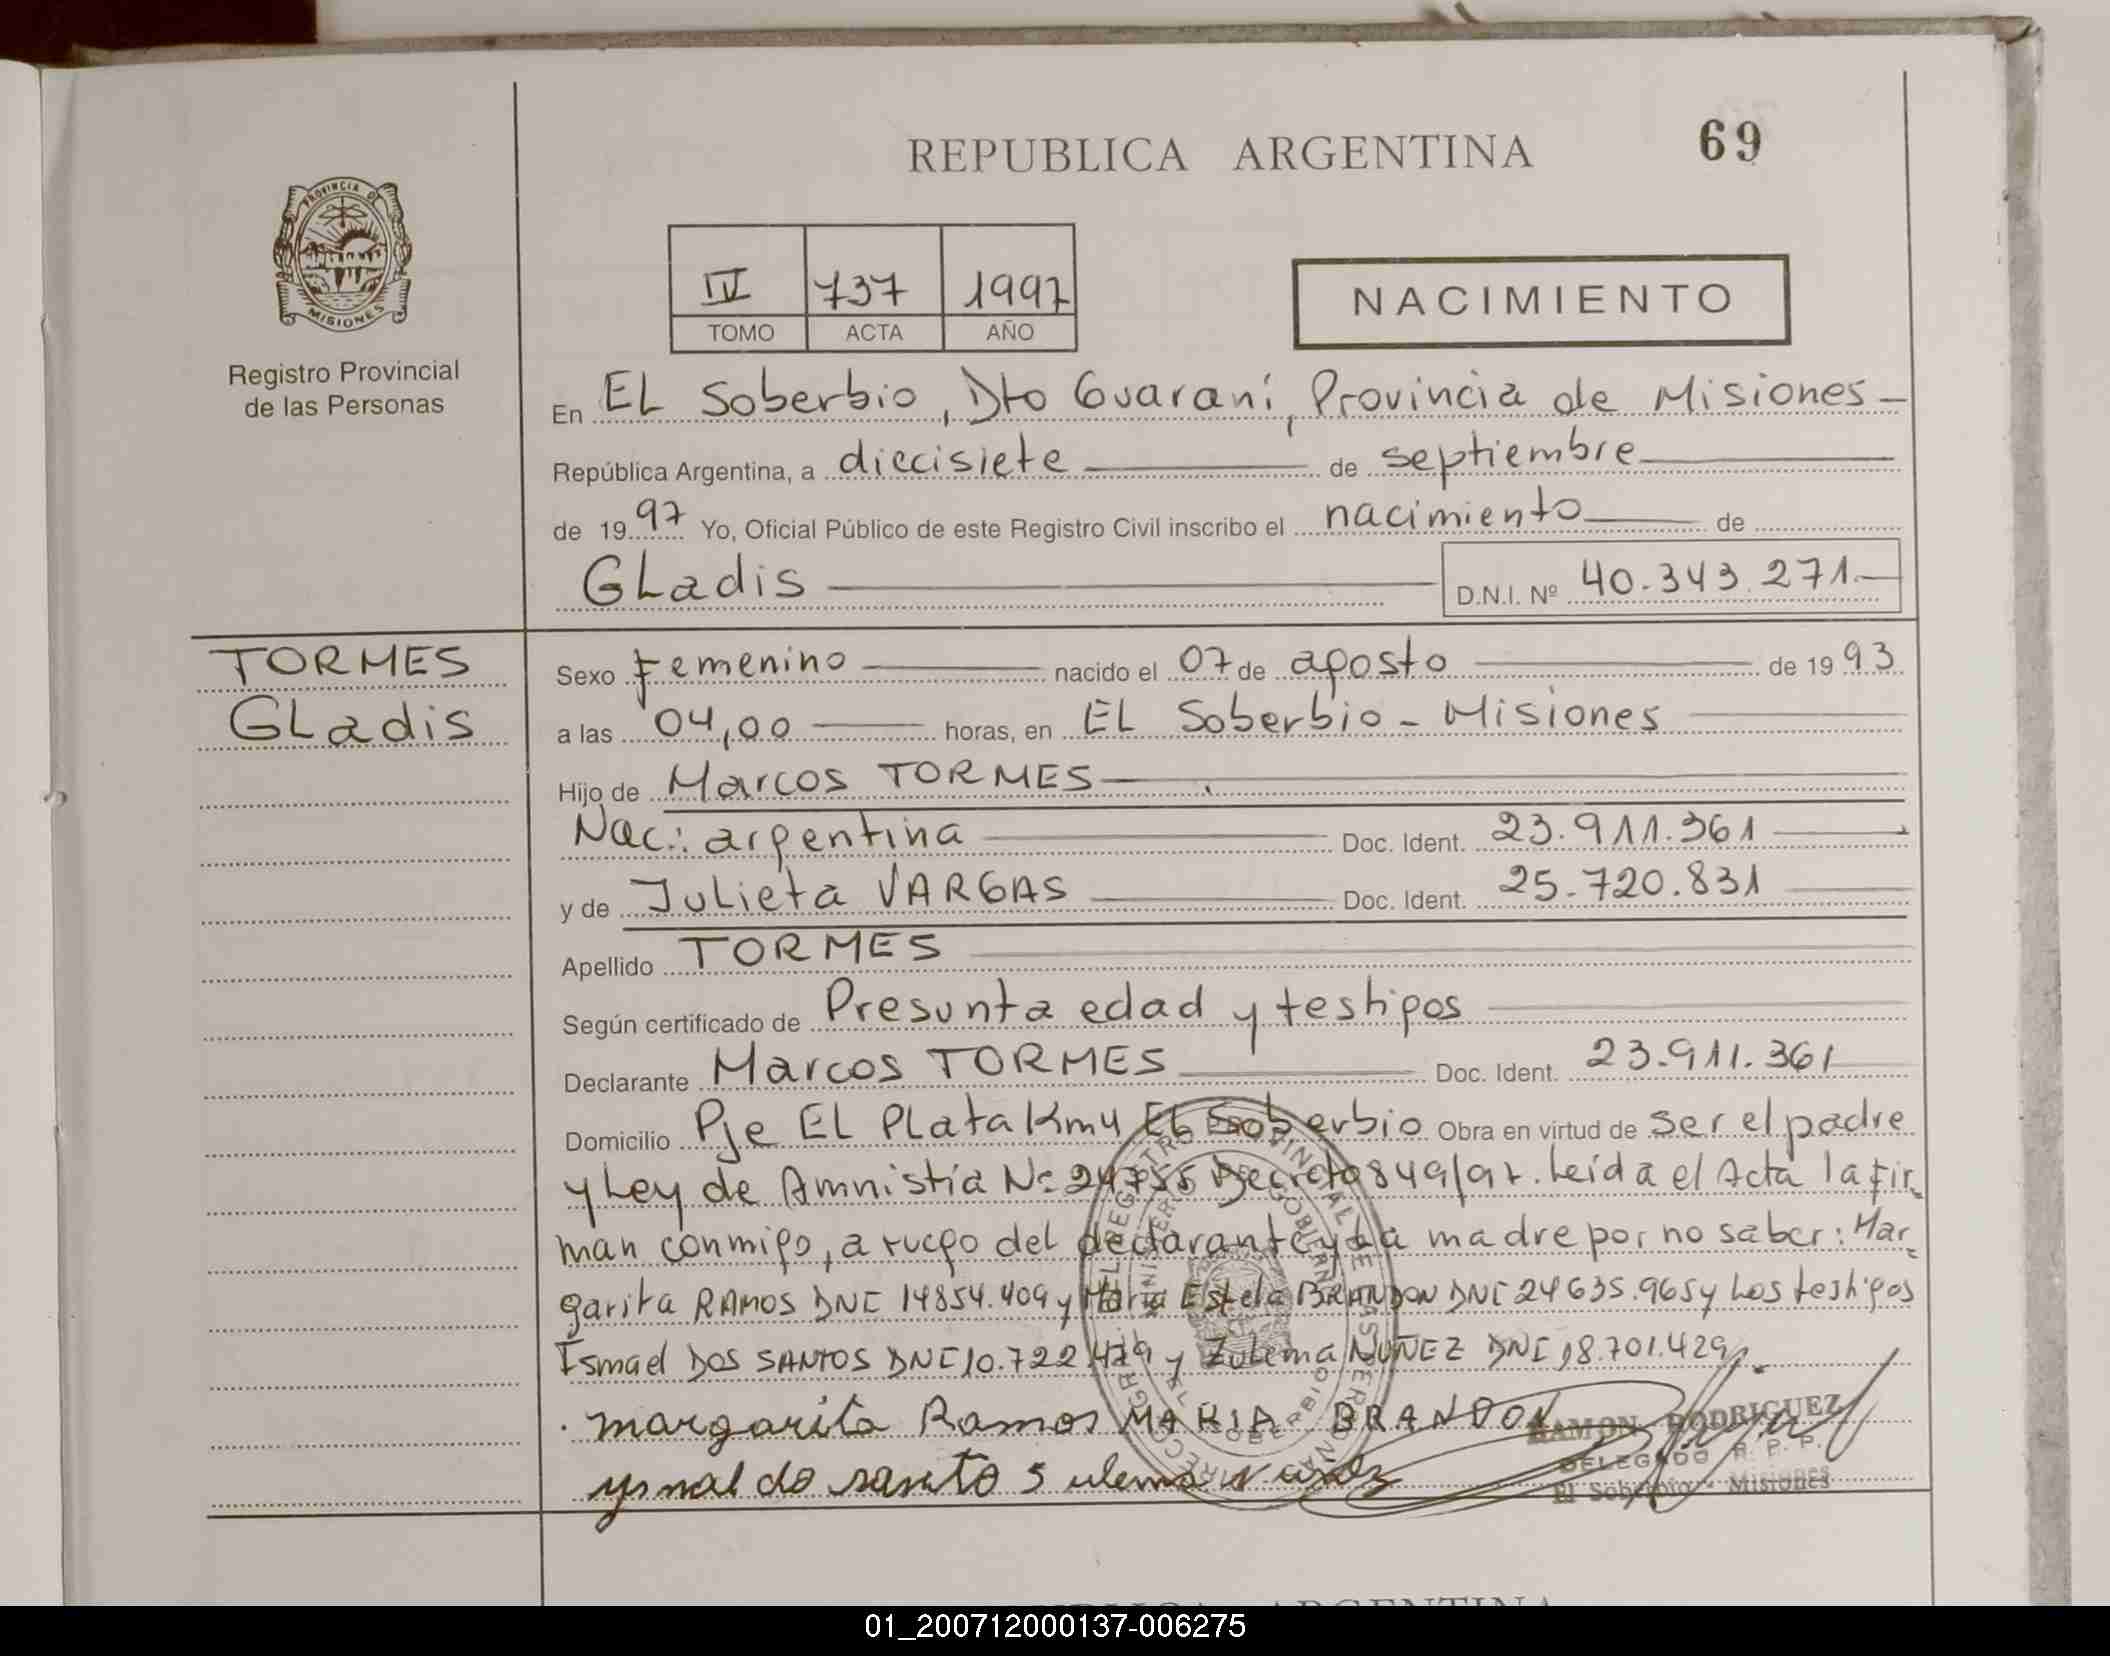 REPUBLICA ARGENTINA
69
PROVINCIA DE
MISIONES
Registro Provincial
de las Personas
IV 737 1997
TOMO ACTA AÑO
NACIMIENTO
En EL Soberbio, Dto Guaraní, Provincia de Misiones
República Argentina, a diecisiete de septiembre
de 1997 Yo, Oficial Público de este Registro Civil inscribo el nacimiento de
GLadis
D.N.I. Nº 40.343.271.
TORMES
GLadis
Sexo Femenino nacido el 07 de agosto de 1993
a las 04,00 horas, en EL Soberbio - Misiones
Hijo de Marcos TORMES
Nac: argentina Doc. Ident. 23.911.361
y de Julieta VARGAS Doc. Ident. 25.720.831
Apellido TORMES
Según certificado de Presunta edad y testigos
Declarante Marcos TORMES Doc. Ident. 23.911.361
Domicilio Pje EL Plata Km4 EL Soberbio Obra en virtud de ser el padre
y Ley de Amnistía Nº 24755 Decreto 849/97. Leída el Acta la fir=
man conmigo, a ruego del declarante y La madre por no saber: Mar=
garita RAMOS DNI 14854.409 y María Estela BRANDON DNI 24635.965 y Los testigos
Ismael DOS SANTOS DNI 10.722.479 y Zulema NUÑEZ DNI 18.701.429
margarita Ramos MARIA BRANDON
RAMON RODRIGUEZ
DELEGADO R. P. P.
El Soberbio - Misiones
ysmal do santo s ulema
01_200712000137-006275